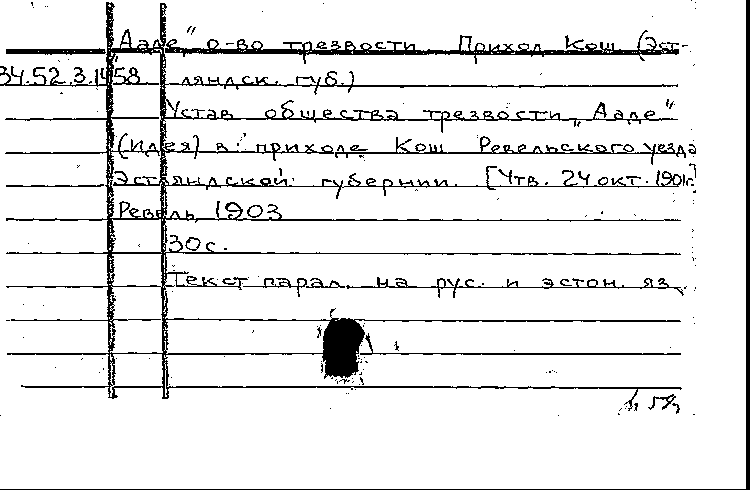 Ааде," о-во трезвости. Приход Кош (Эст-
34.52.3.1458 ляндск. губ.)
Устав общества трезвости „Ааде"
(идея) в приходе Кош Ревельского уезда
Эстляндской губернии. [Утв. 24 окт. 1901г.]
Ревель, 1903
30с.
Текст парал. на рус. и эстон. яз.